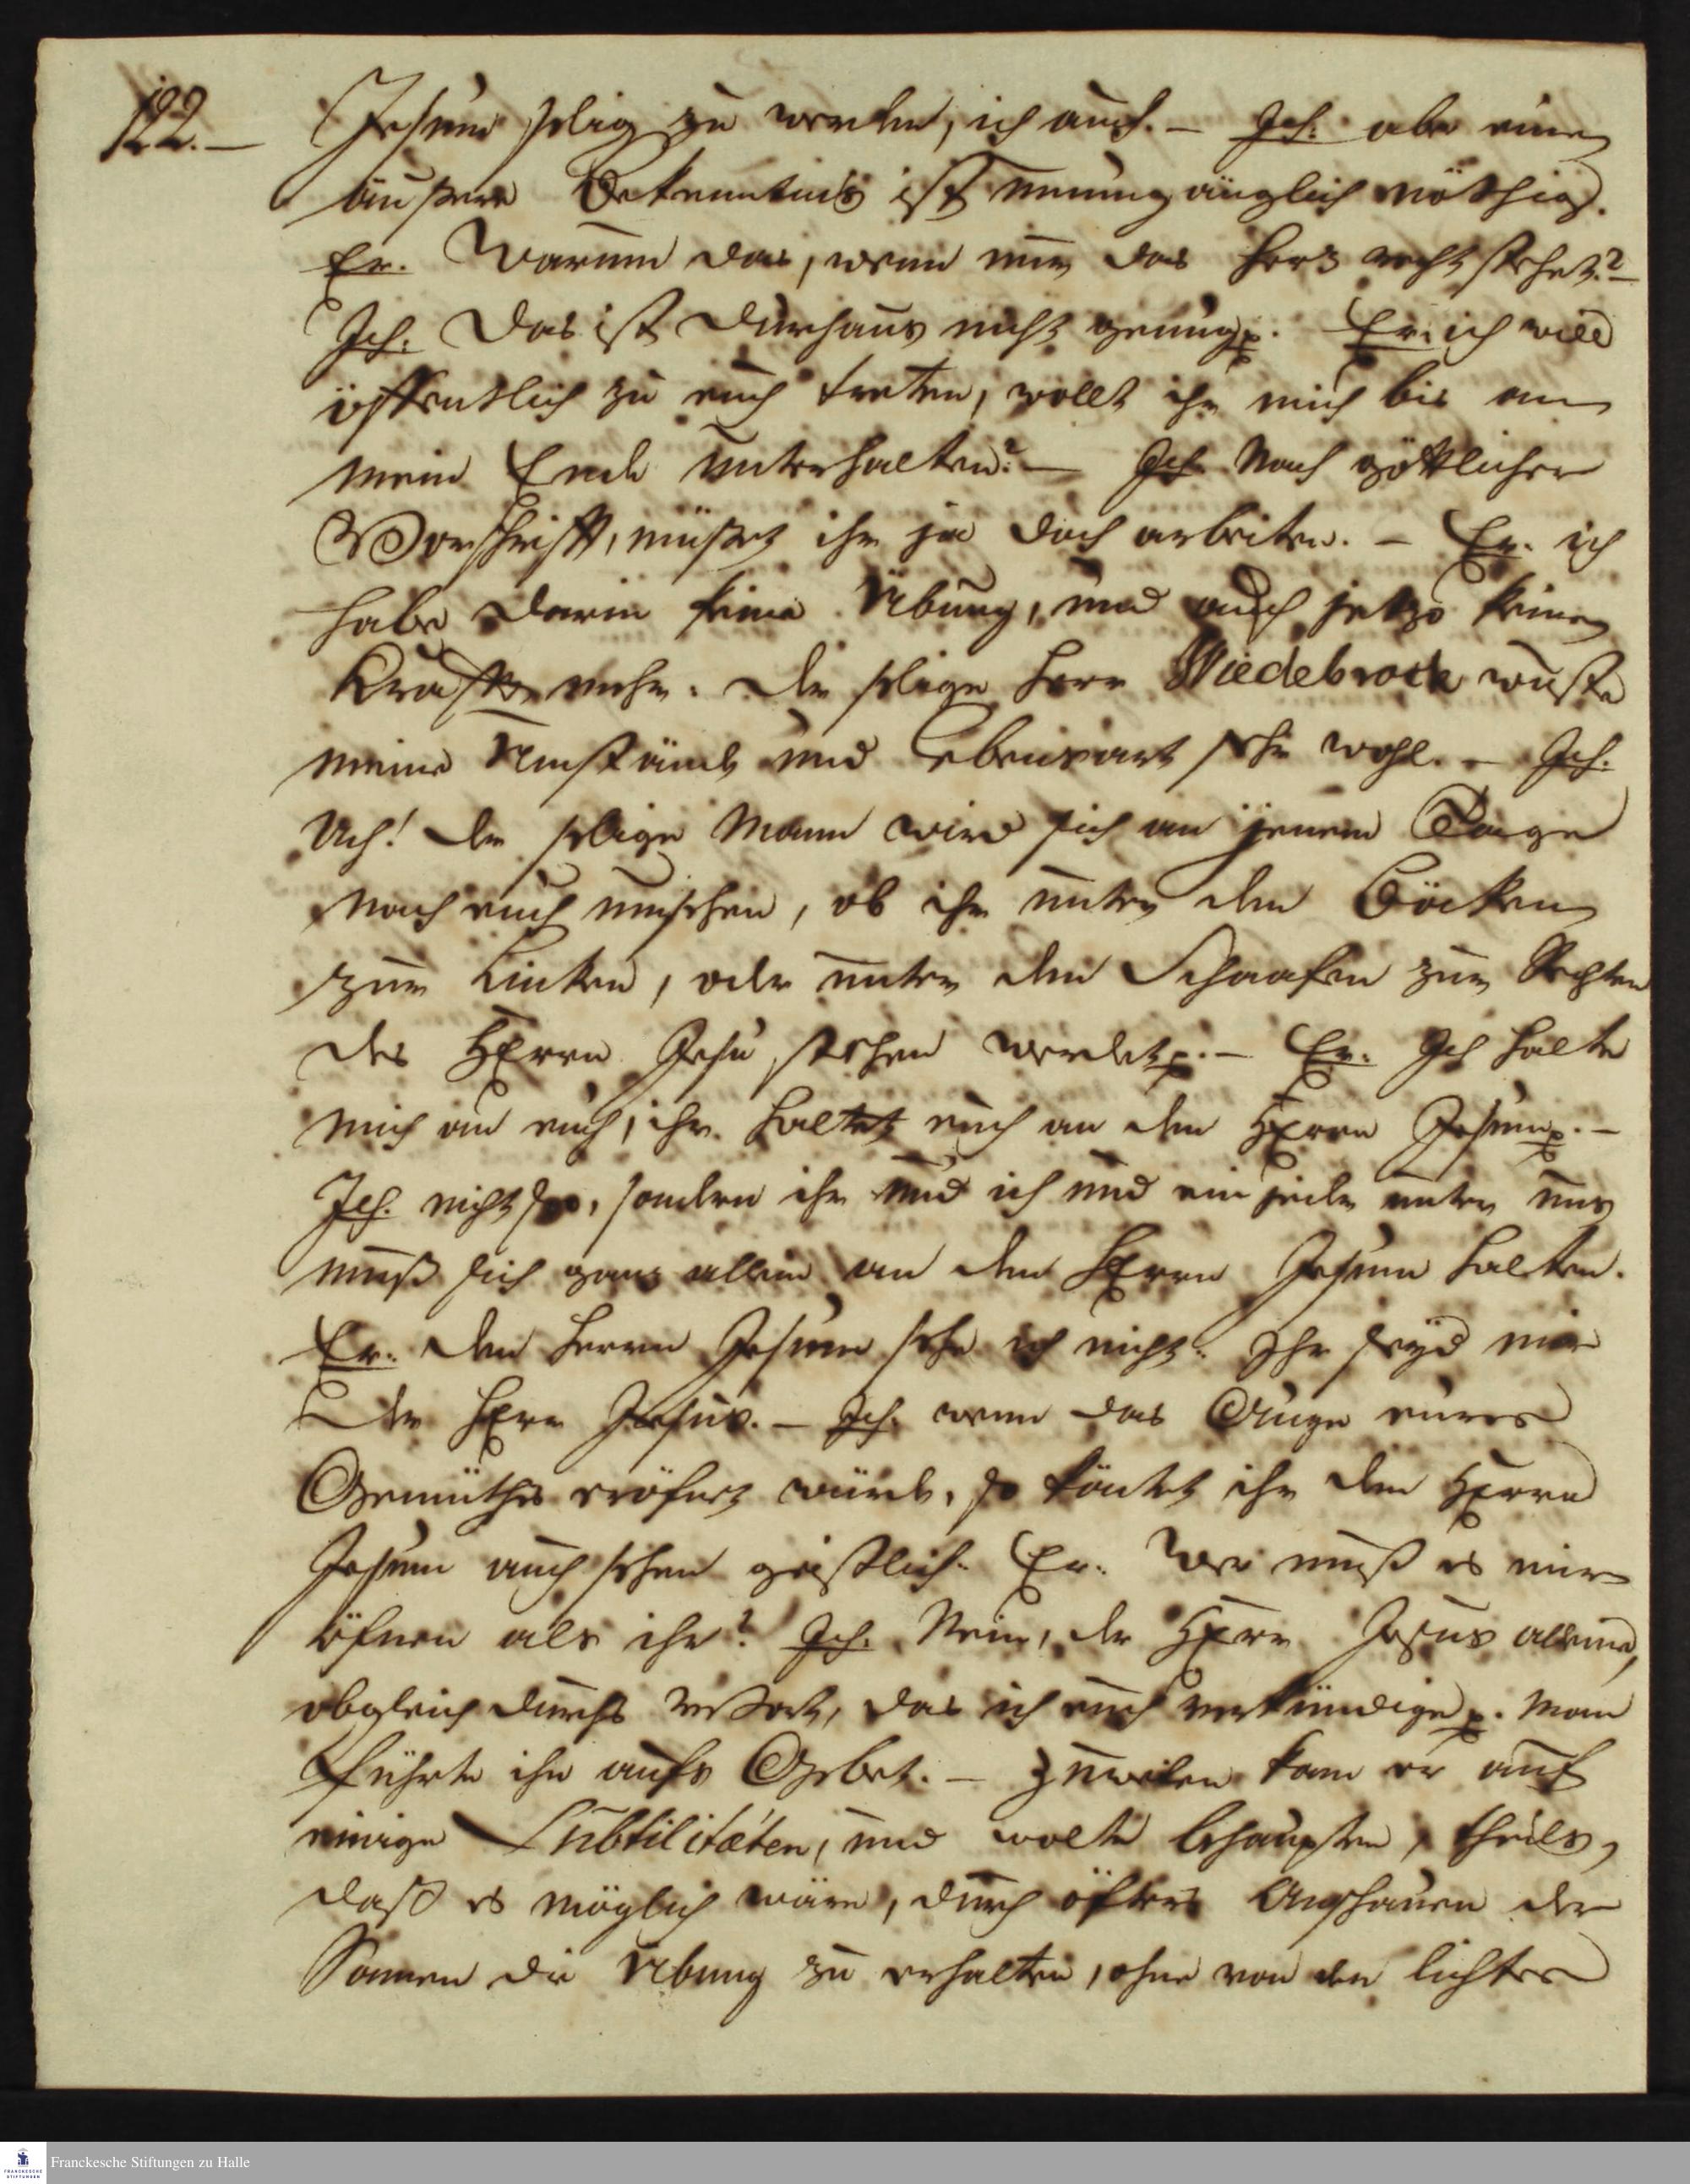 122.–
Jesum selig zu werden, ich auch. – Ich. aber eine
äußere Bekenntniß ist unumgänglich nöthig.
Er. Warum das, wenn nur das Herz recht stehet? –
Ich. Das ist durchaus nicht genung p. Er. ich will
öffentlich zu euch treten, wollt ihr mich bis an
mein Ende unterhalten? – Ich Nach göttlicher
Vorschrifft, müßet ihr ja doch arbeiten. – Er. ich
habe darin keine Übung, und auch jetzo keine
Kraffte mehr. der selige Herr Wiedebrock wuste
meine Umstände und Lebensart sehr wohl. – Ich.
Ach! der selige Mann wird sich an jenem Tage
nach euch umsehen, ob ihr unter den Böcken
zur Lincken, oder unter den Schaafen zur Rechten
des HErrn Jesu stehen werdet p. – Er. Ich halte
mich an euch, ihr haltet euch an den HErrn Jesum p. –
Ich. nicht so, sondern ihr und ich und ein jeder unter uns
muß sich ganz allein an den HErrn Jesum halten.
Er. den Herrn Jesum sehe ich nicht. Ihr seyd mir
der HErr Jesus. – Ich. wenn das Auge eures
Gemüthes eröfnet würde, so köntet ihr den HErrn
Jesum auch sehen geistlich. Er. Wer muß es mir
öfnen als ihr? Ich. Nein, der HErr Jesus alleine,
obgleich durchs Wort, das ich euch verkündige p. Man
führte ihn aufs Gebet. – Zuweilen kam er auf
einige Subtilitæten, und wolte behaupten, theils,
daß es möglich wäre, durch öfters Anschauen der
Sonnen die Übung zu erhalten, ohne von den lichten
Franckesche Stiftungen zu Halle